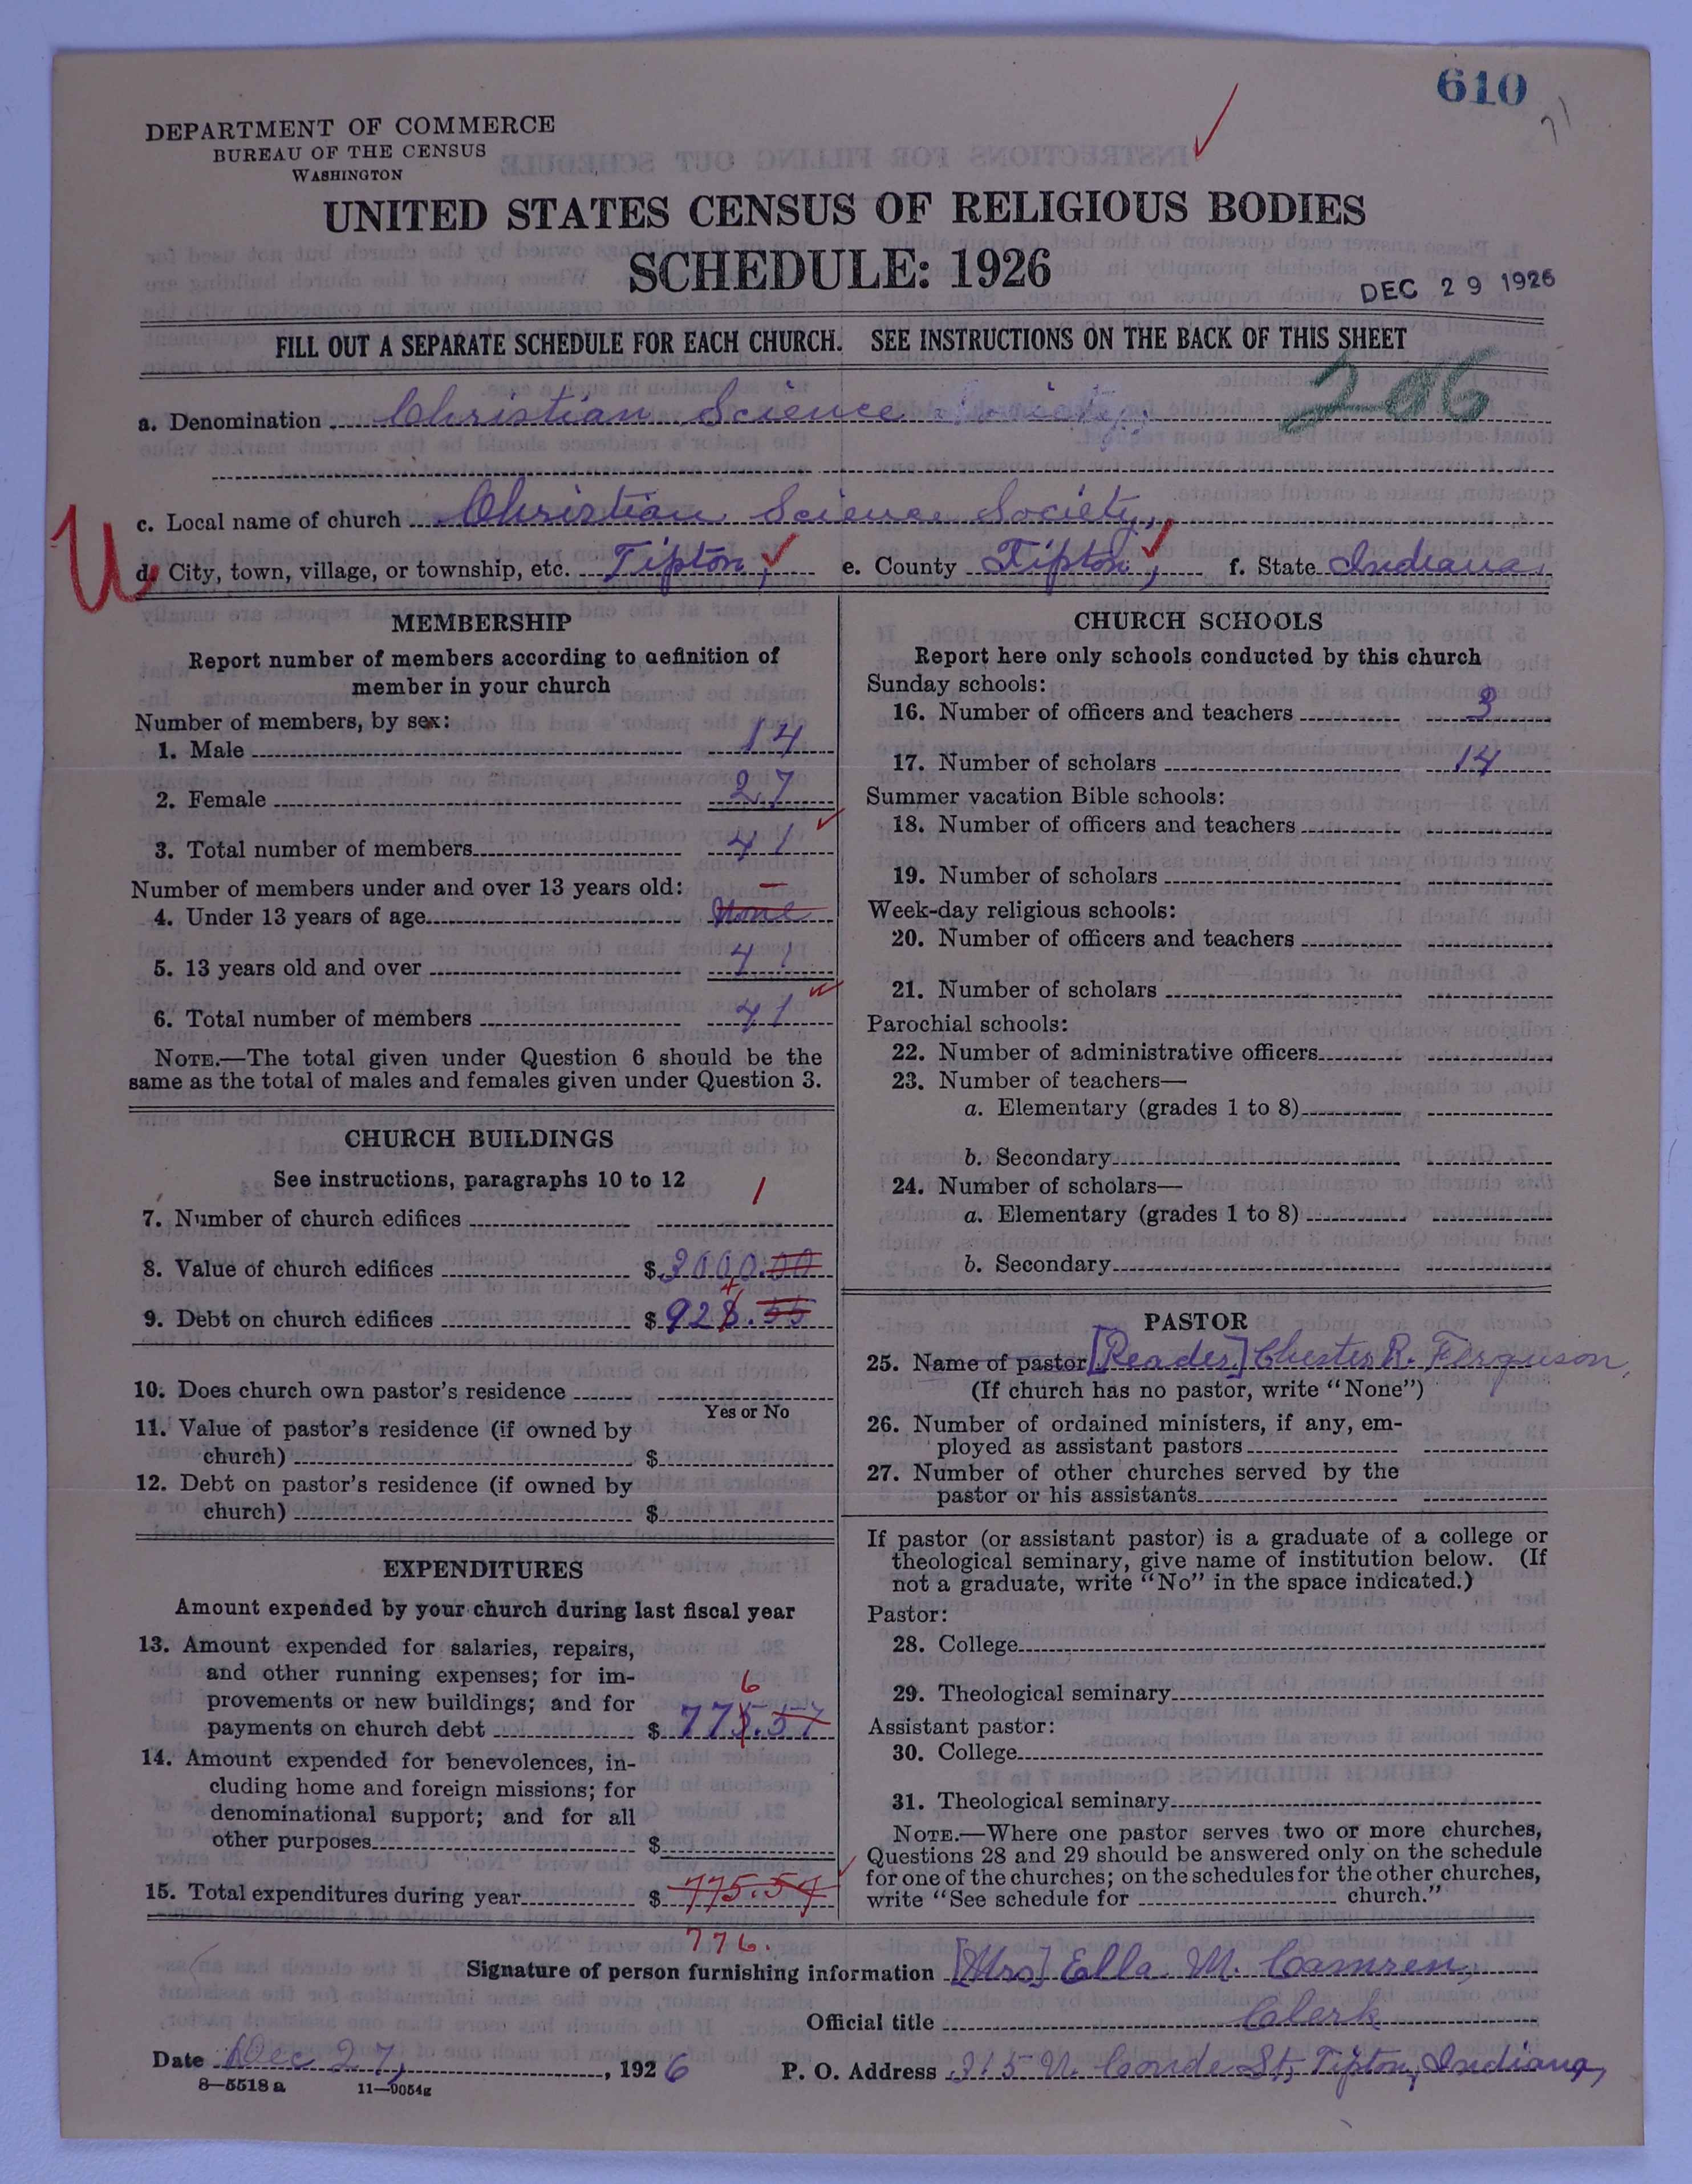 610
71
DEPARTMENT OF COMMERCE
BUREAU OF THE CENSUS
WASHINGTON
UNITED STATES CENSUS OF RELIGIOUS BODIES
SCHEDULE: 1926
DEC 29 1926
FILL OUT A SEPARATE SCHEDULE FOR EACH CHURCH. SEE INSTRUCTIONS ON THE BACK OF THIS SHEET
a. Denomination Christian Science Society,
c. Local name of church Christian Science Society,
U
d. City, town, village, or township, etc. Tipton, e. County Tipton, f. State Indiana.
MEMBERSHIP
Report number of members according to definition of
member in your church
Number of members, by sex:
1. Male 14
2. Female 27
3. Total number of members 41
Number of members under and over 13 years old: –
4. Under 13 years of age None
5. 13 years old and over 41
6. Total number of members 41
NOTE.—The total given under Question 6 should be the
same as the total of males and females given under Question 3.
CHURCH BUILDINGS
See instructions, paragraphs 10 to 12
7. Number of church edifices 1
8. Value of church edifices $ 3000.00
9. Debt on church edifices $ 928.55
10. Does church own pastor's residence
Yes or No
11. Value of pastor's residence (if owned by
church) $
12. Debt on pastor's residence (if owned by
church) $
EXPENDITURES
Amount expended by your church during last fiscal year
13. Amount expended for salaries, repairs,
and other running expenses; for im-
provements or new buildings; and for
6
payments on church debt $ 775.57
14. Amount expended for benevolences, in-
cluding home and foreign missions; for
denominational support; and for all
other purposes $
15. Total expenditures during year $ 775.57
776.
CHURCH SCHOOLS
Report here only schools conducted by this church
Sunday schools:
16. Number of officers and teachers 3
17. Number of scholars 14
Summer vacation Bible schools:
18. Number of officers and teachers
19. Number of scholars
Week-day religious schools:
20. Number of officers and teachers
21. Number of scholars
Parochial schools:
22. Number of administrative officers
23. Number of teachers—
a. Elementary (grades 1 to 8)
b. Secondary
24. Number of scholars—
a. Elementary (grades 1 to 8)
b. Secondary
PASTOR
25. Name of pastor [Reader] Chester R. Ferguson,
(If church has no pastor, write "None")
26. Number of ordained ministers, if any, em-
ployed as assistant pastors
27. Number of other churches served by the
pastor or his assistants
If pastor (or assistant pastor) is a graduate of a college or
theological seminary, give name of institution below. (If
not a graduate, write "No" in the space indicated.)
Pastor:
28. College
29. Theological seminary
Assistant pastor:
30. College
31. Theological seminary
NOTE.—Where one pastor serves two or more churches,
Questions 28 and 29 should be answered only on the schedule
for one of the churches; on the schedules for the other churches,
write "See schedule for church."
Signature of person furnishing information [Mrs] Ella M. Camren,
Official title Clerk
Date Dec 27, 1926 P. O. Address 315 N. Conde St, Tipton, Indiana,
8—5518a 11—9054g